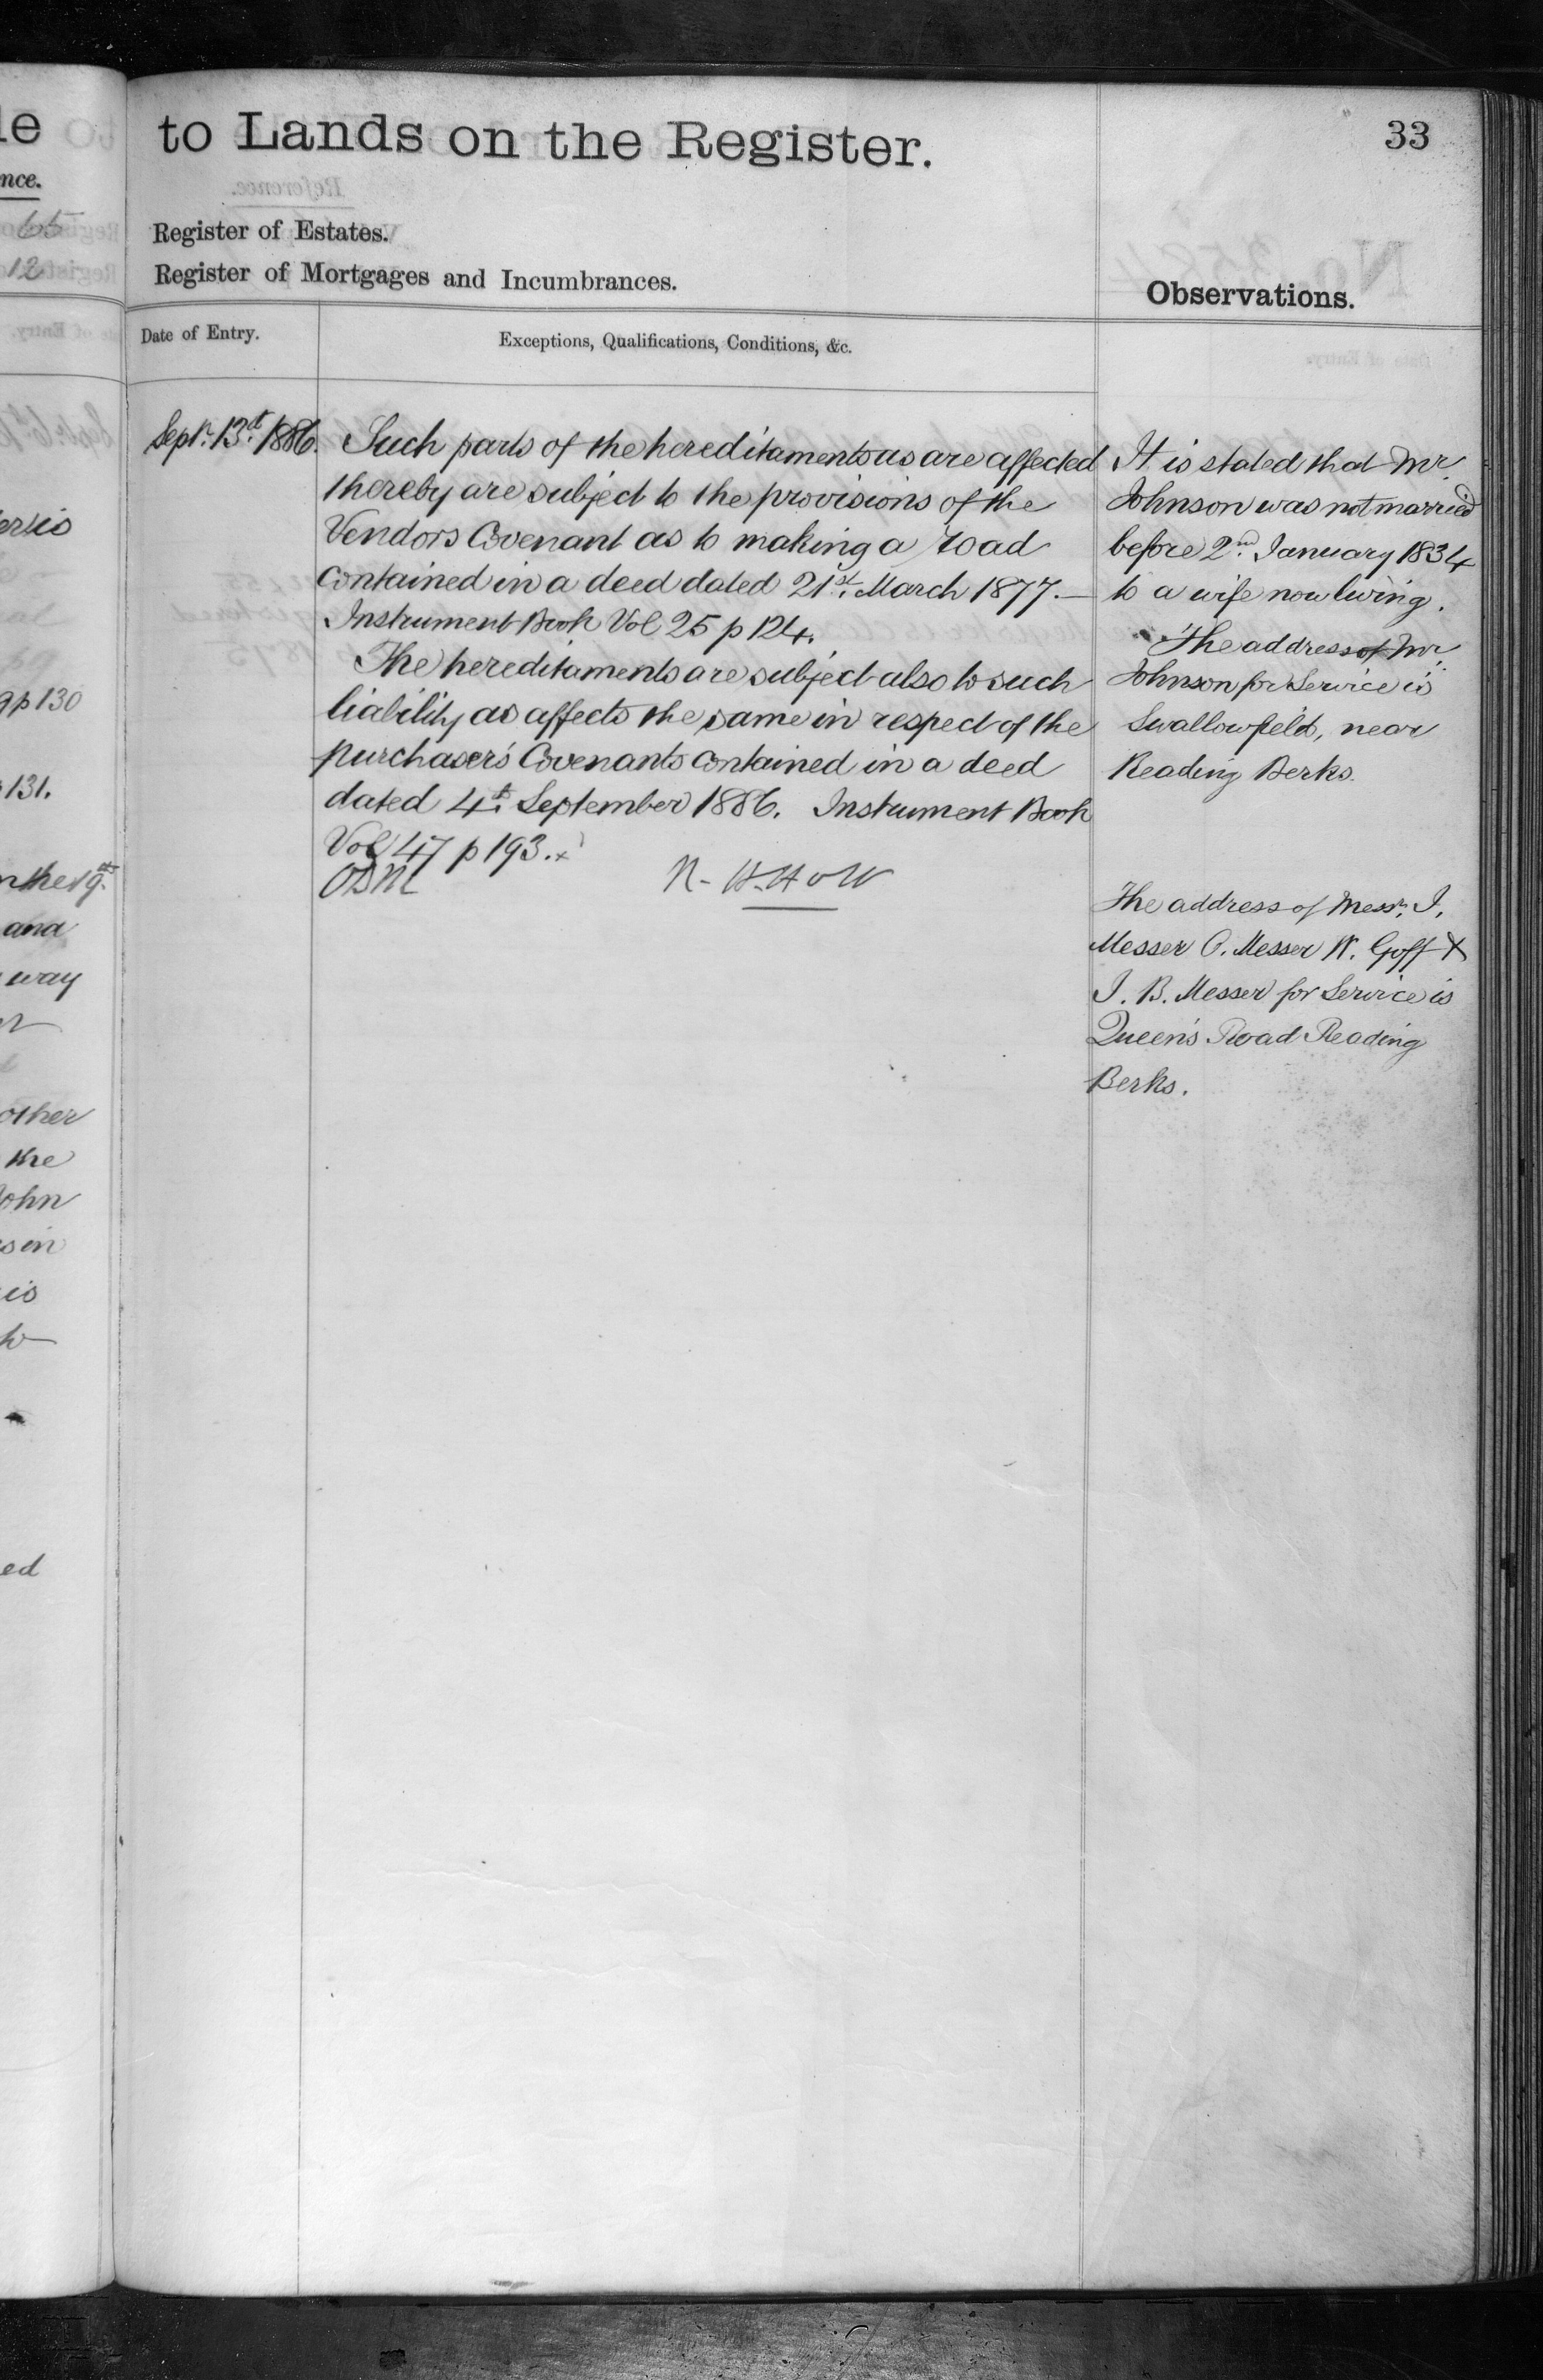 to Lands on the Register.
33
Register of Estates.
Register of Mortgages and Incumbrances.
Observations.
Date of Entry.
Exceptions, Qualifications, Conditions, &c.
Septr. 13th 1886.
Such parts of the hereditaments as are affected
thereby are subject to the provisions of the
Vendors Covenant as to making a road
contained in a deed dated 21st. March 1877.—
Instrument Book Vol 25 p 124.
The hereditaments are subject also to such
liability as affects the same in respect of the
purchaser's Covenants contained in a deed
dated 4th. September 1886. Instrument Book
Vol 47 p 193.
It is stated that Mr.
Johnson was not married
before 2nd January 1834
to a wife now living.
The address of Mr.
Johnson for Service is
Swallowfield, near
Reading Berks.
The address of Messrs. I.
Messer O. Messer W. Goff &
I. B. Messer for Service is
Queen's Road Reading
Berks.
le
nce.
65
12
p 130
131.
and
way
other
the
John
is
ed